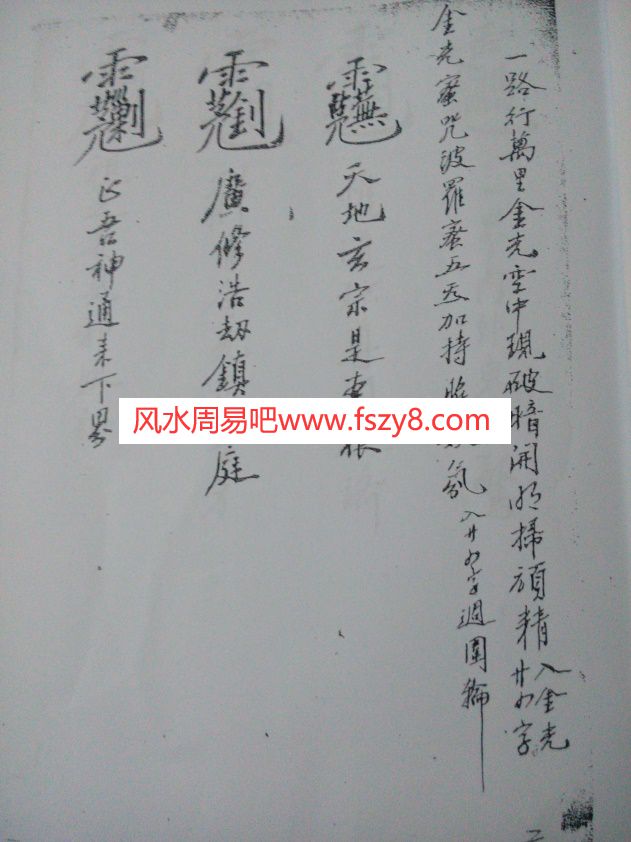 一路行萬里金光空中現破暗開明掃頑精 入金光廿四字
金光蜜咒波羅蜜五炁加持氛 入廿四字週圍輪
天地玄宗是根
廣修浩劫鎮庭
吾神通来下界
风水周易吧www.fszy8.com